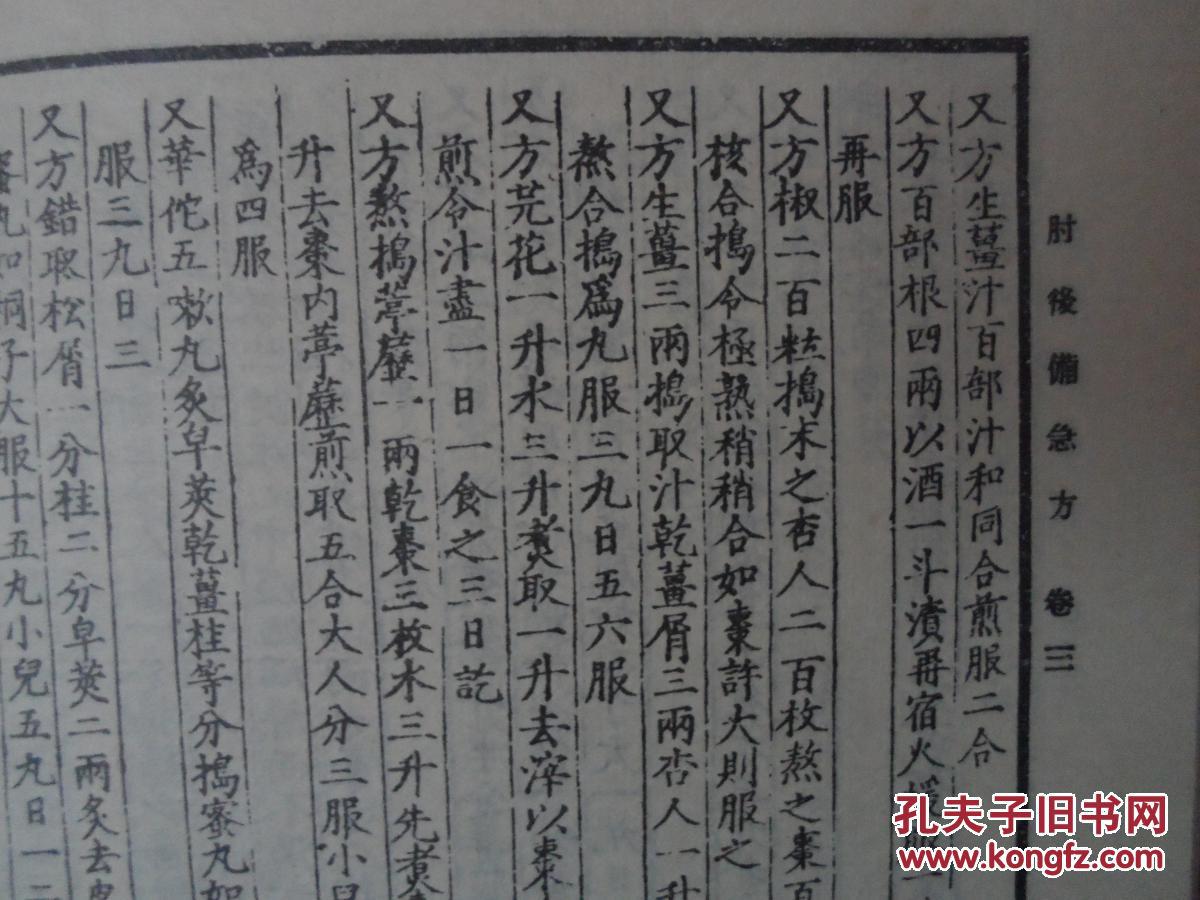 肘後備急方 卷三
又方生薑汁百部汁和同合煎服二合
又方百部根四兩以酒一斗漬再宿火
再服
又方椒二百粒擣末之杏人二百枚熬之棗百
核合擣令極熟稍稍合如棗許大則服之
又方生薑三兩擣取汁乾薑屑三兩杏人一升
熬合擣爲丸服三丸日五六服
又方芫花一升水三升煑取一升去滓以棗
煎令汁盡一日一食之三日訖
又方熬擣葶藶一兩乾棗三枚水三升先煑
升去棗內葶藶煎取五合大人分三服小兒
爲四服
又華佗五嗽丸炙皁莢乾薑桂等分擣蜜丸如
服三丸日三
又方錯取松屑一分桂二分皁莢二兩炙去皮
蜜丸如桐子大服十五丸小兒五丸日一二
孔夫子旧书网
www.kongfz.com